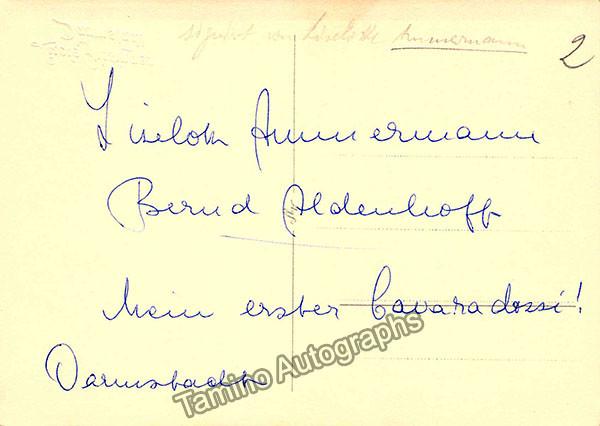 signiert von Liselotte Ammermann
2
Liselott Ammermann
Bernd Aldenhoff
Mein erster Cavaradossi!
Darmstadt
Tamino Autographs